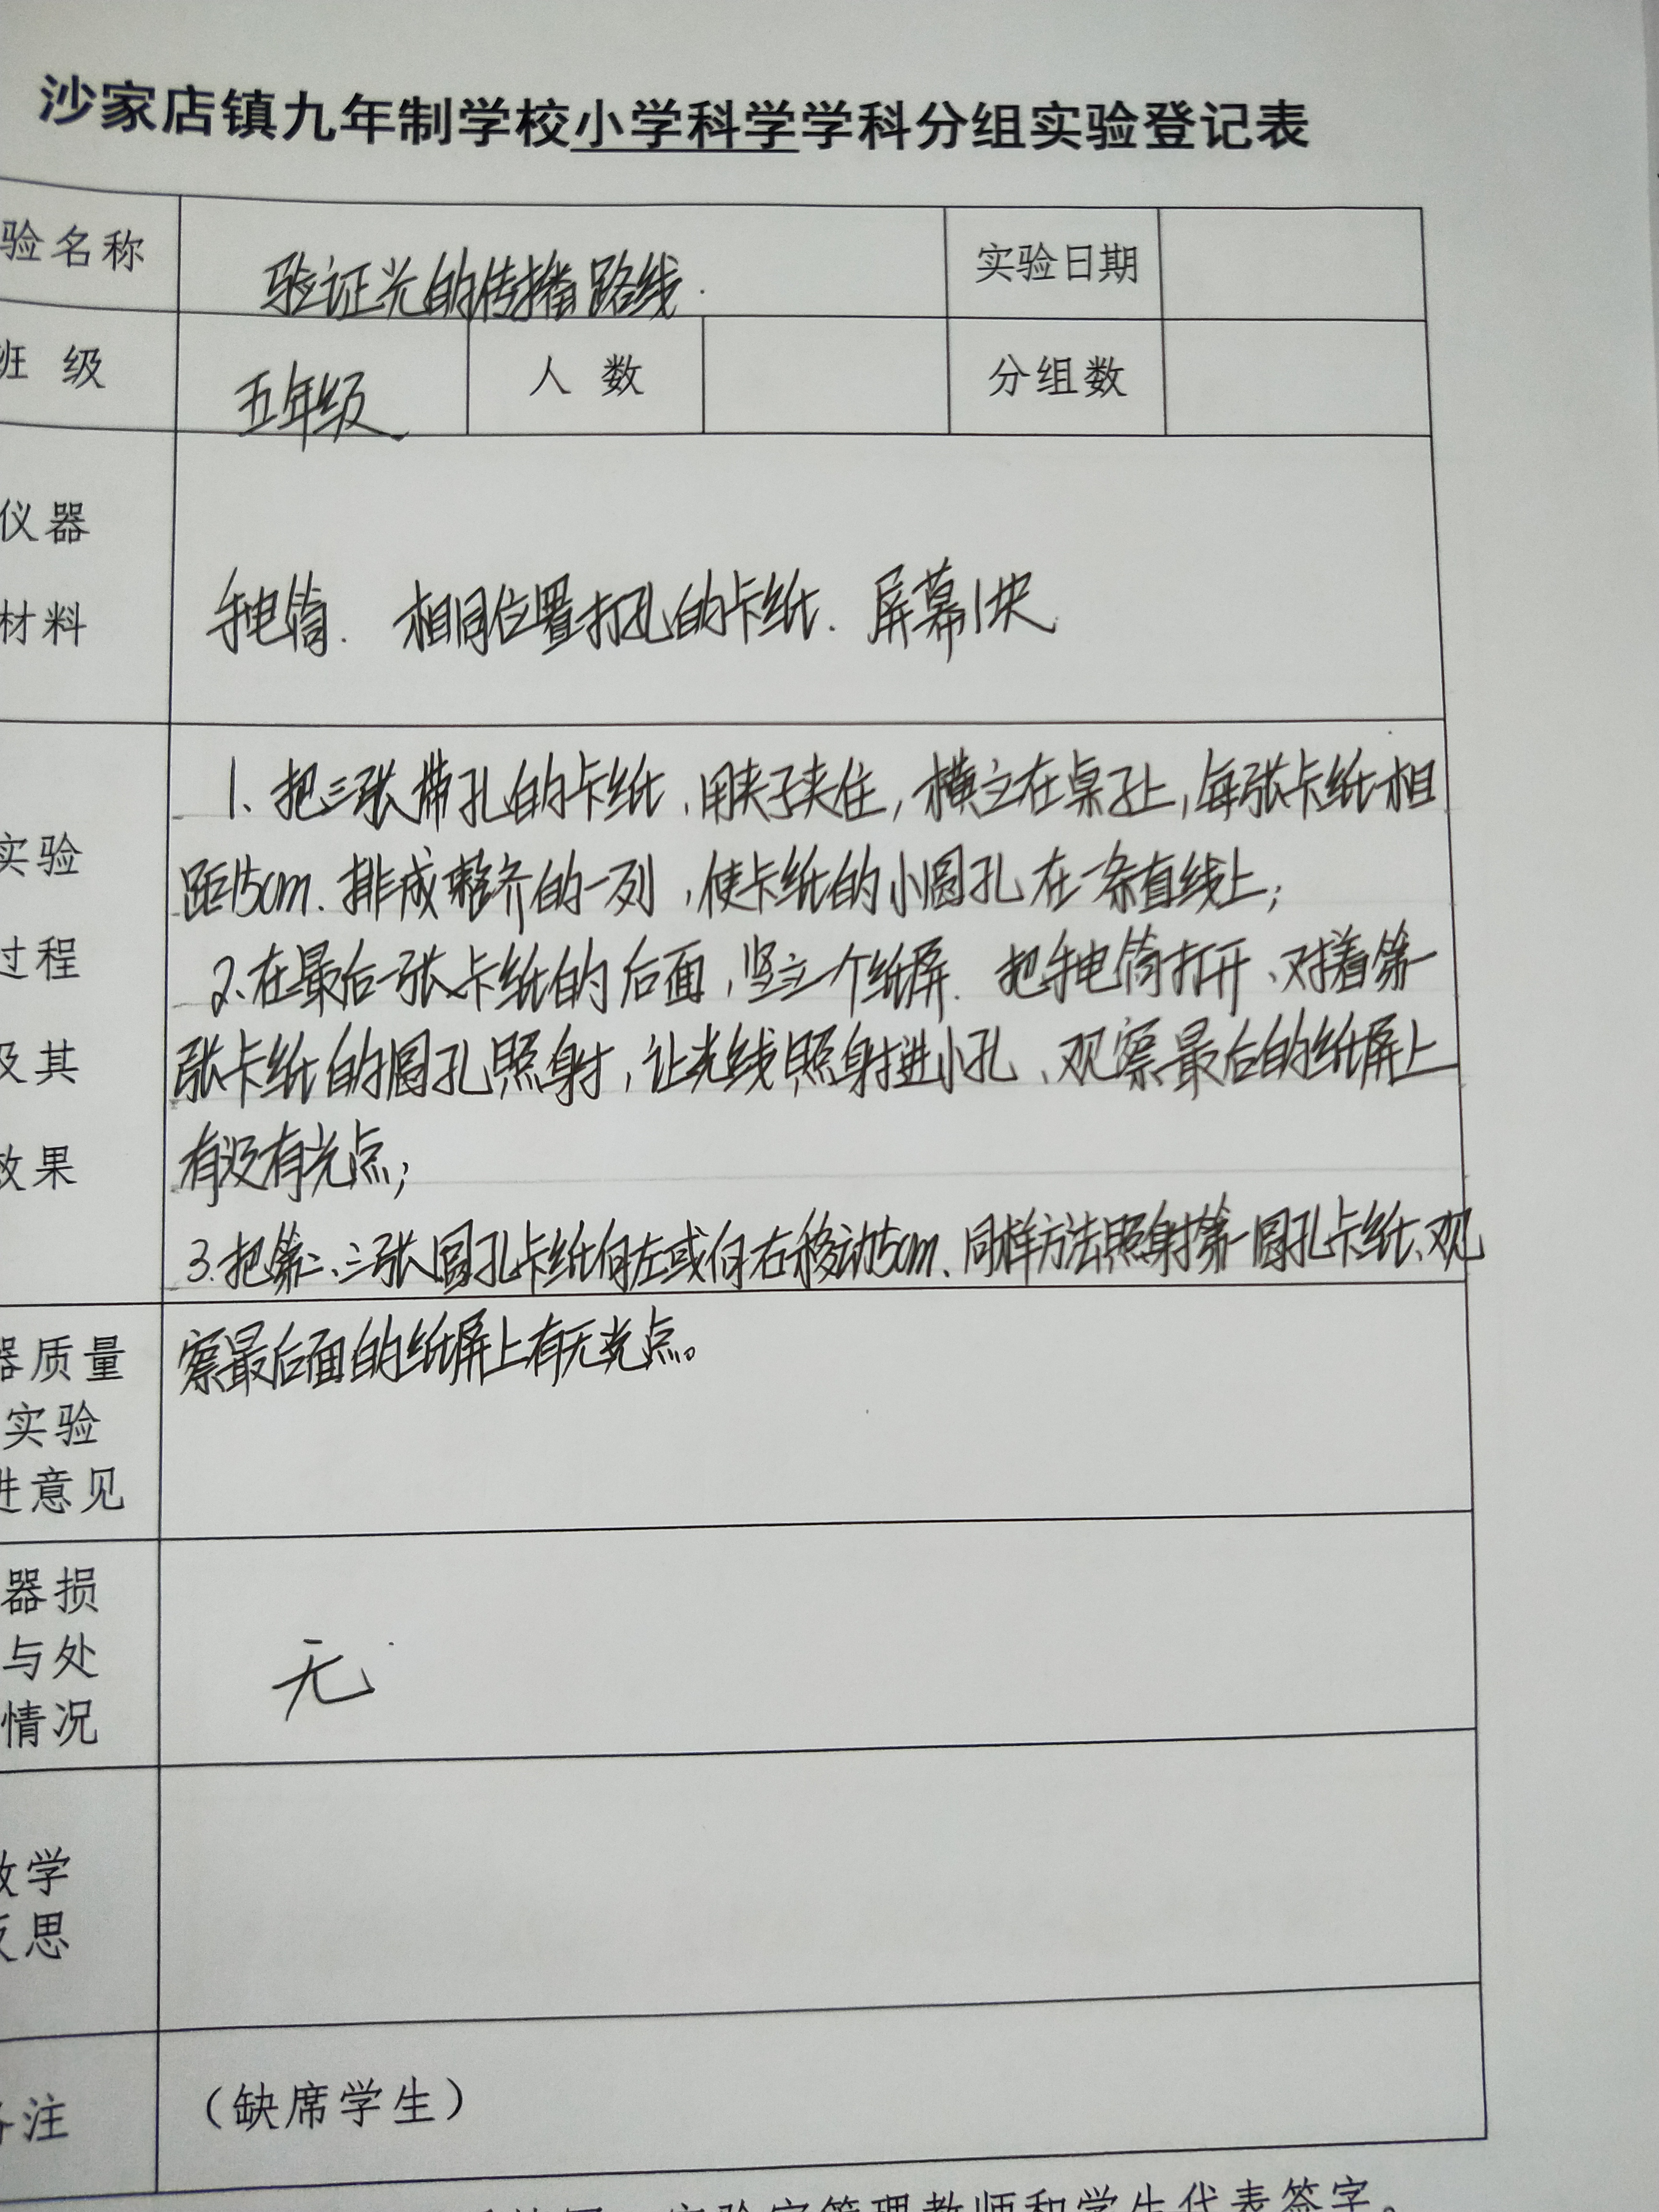 沙家店镇九年制学校小学科学学科分组实验登记表
验名称 验证光的传播路线. 实验日期
班 级 五年级 人 数 分组数
仪器
材料
手电筒. 相同位置打孔的卡纸. 屏幕1块
实验
过程
及其
效果
1、把三张带孔的卡纸、用夹子夹住,横立在桌子上,每张卡纸相
距15cm.排成整齐的一列,使卡纸的小圆孔在一条直线上;
2、在最后一张卡纸的后面,竖立一个纸屏.把手电筒打开、对着第一
张卡纸的圆孔照射,让光线照射进小孔、观察最后的纸屏上
有没有光点;
3.把第二、三张圆孔卡纸向左或向右移动5cm、同样方法照射第一圆孔卡纸、观
察最后面的纸屏上有无光点。
器质量
实验
进意见
器损
与处
情况
无
教学
反思
备注 (缺席学生)
实验室管理教师和学生代表签字。